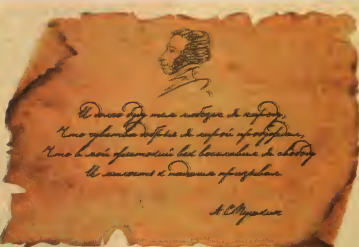 И долго буду тем любезен я народу,
Что чувства добрые я лирой пробуждал,
Что в мой жестокий век восславил я свободу
И милость к падшим призывал
А.С.Пушкин